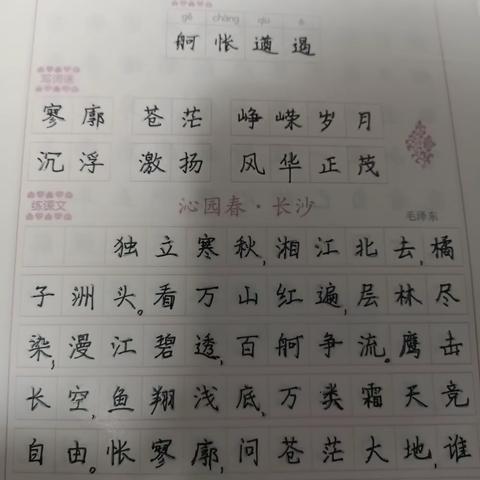 gě chàng qiú è
舸 怅 遒 遏
写词语
寥廓 苍茫 峥嵘岁月
沉浮 激扬 风华正茂
练课文
沁园春·长沙
毛泽东
独立寒秋,湘江北去,橘
子洲头。看万山红遍,层林尽
染,漫江碧透,百舸争流。鹰击
长空,鱼翔浅底,万类霜天竞
自由。怅寥廓,问苍茫大地,谁